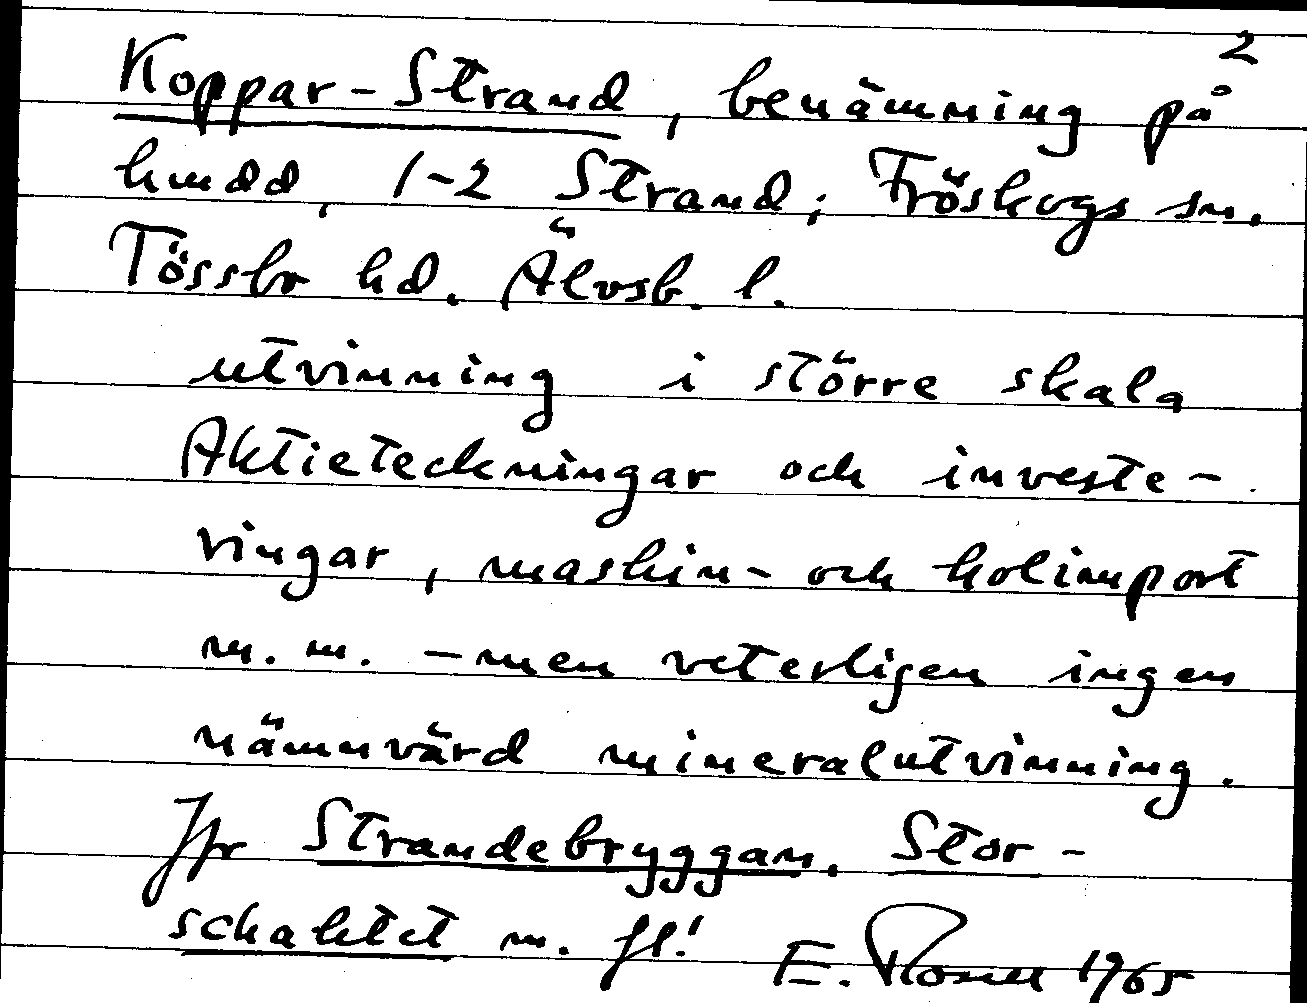 2
Koppar-Strand, benämning på
hmdd, 1-2 Strand; Fröskogs sn.
Tössbo hd. Älvsb. l.
utvinning i större skala
Aktieteckningar och investe-
ringar, maskin- och kolimport
m. m. - men veterligen ingen
nämnvärd mineralutvinning.
Jfr Strandebryggan, Stor-
schaktet m. fl!
E. 1965